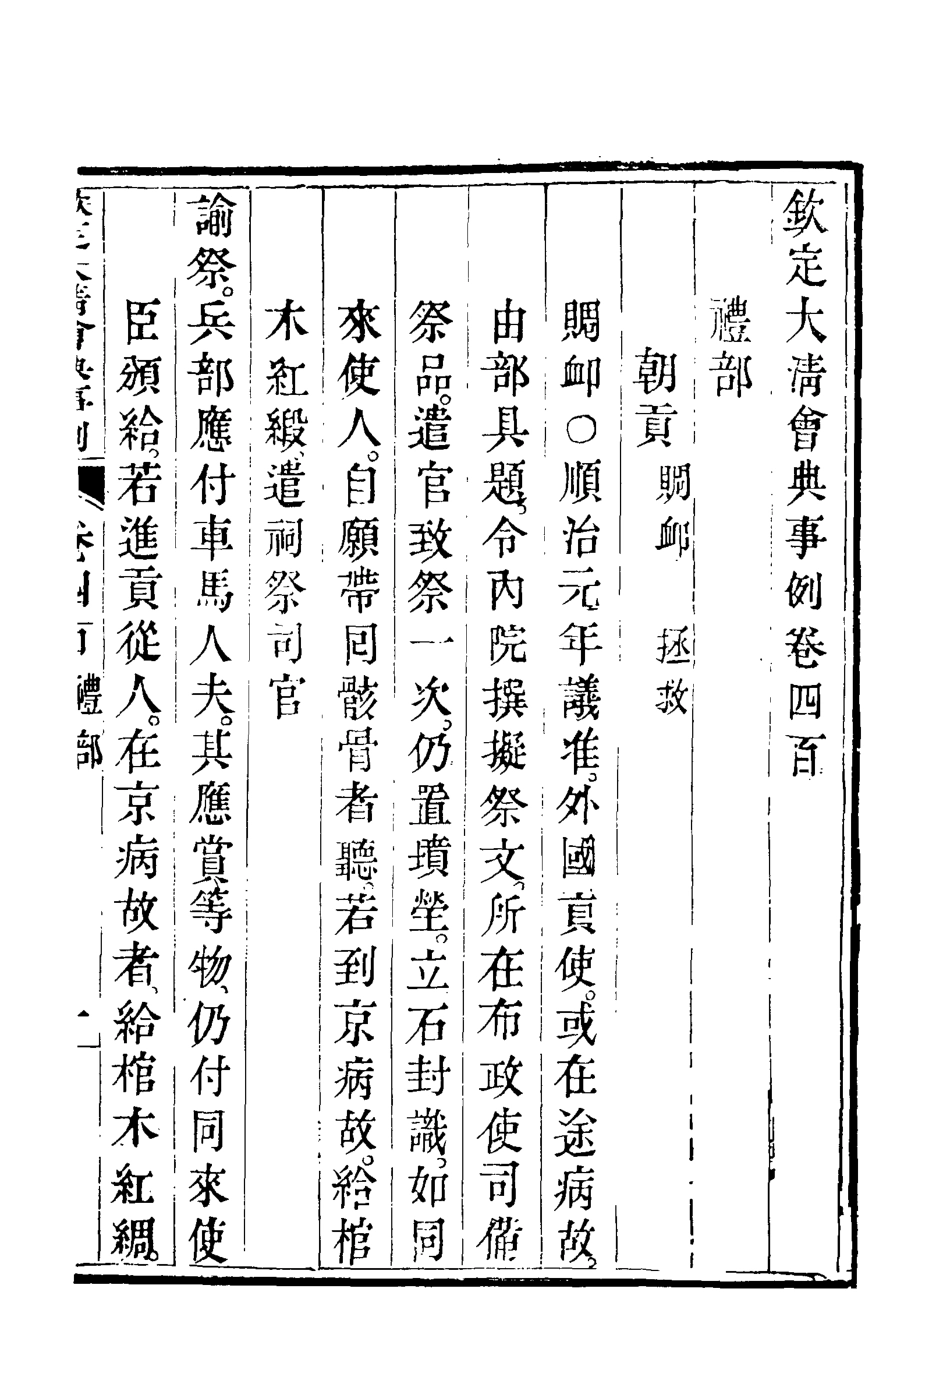 欽定大清會典事例卷四百
禮部
朝貢 賙卹 拯救
賙卹○順治元年議准。外國貢使。或在途病故。
由部具題。令內院撰擬祭文。所在布政使司備
祭品。遣官致祭一次。仍置墳塋。立石封識。如同
來使人。自願帶囘骸骨者聽。若到京病故。給棺
木紅緞、遣祠祭司官
諭祭。兵部應付車馬人夫。其應賞等物、仍付同來使
臣頒給。若進貢從人。在京病故者、給棺木紅綢。
欽定大清會典事例 卷四百 禮部 一